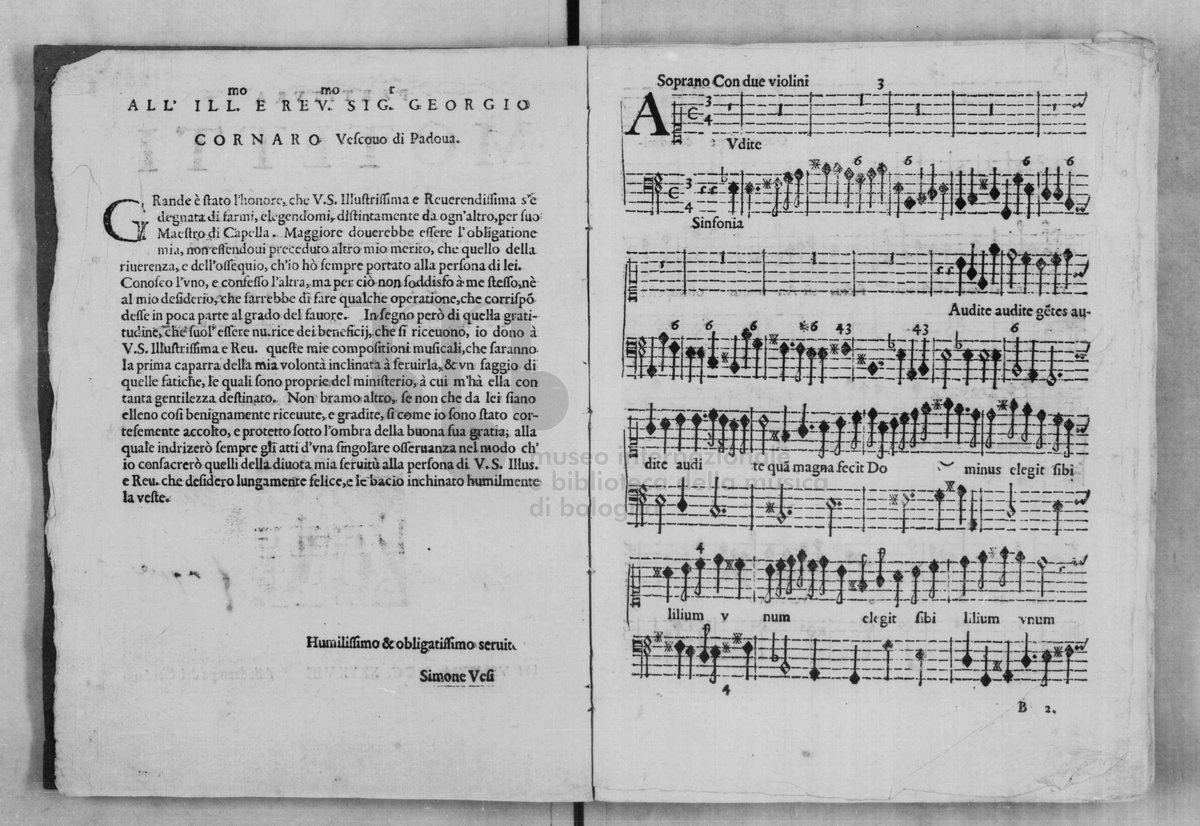 mo mo r
ALL' ILL. E REV. SIG. GEORGIO
CORNARO Veſcouo di Padoua.
GRande è ſtato l'honore, che V.S. Illuſtriſſima e Reuerendiſſima s'è
degnata di farmi, elegendomi, diſtintamente da ogn'altro, per ſuo
Maeſtro di Capella. Maggiore douerebbe eſſere l'obligatione
mia, non eſſendoui preceduto altro mio merito, che quello della
riuerenza, e dell'oſſequio, ch'io hò ſempre portato alla perſona di lei.
Conoſco l'vno, e confeſſo l'altra, ma per ciò non ſoddisfo à me ſteſſo, nè
al mio deſiderio, che ſarrebbe di fare qualche operatione, che corriſpõ
deſſe in poca parte al grado del fauore. In ſegno però di queſta grati-
tudine, che ſuol' eſſere nu.rice dei beneficij, che ſi riceuono, io dono à
V.S. Illuſtriſſima e Reu. queſte mie compoſitioni muſicali, che ſaranno
la prima caparra della mia volontà inclinata à ſeruirla, & vn ſaggio di
quelle fatiche, le quali ſono proprie del miniſterio, à cui m'hà ella con
tanta gentilezza deſtinato. Non bramo altro, ſe non che da lei ſiano
elleno coſi benignamente riceuute, e gradite, ſi come io ſono ſtato cor-
teſemente accolto, e protetto ſotto l'ombra della buona ſua gratia; alla
quale indrizerò ſempre gli atti d'vna ſingolare oſſeruanza nel modo ch'
io conſacrerò quelli della diuota mia ſeruitù alla perſona di V. S. Illus.
e Reu. che deſidero lungamente felice, e le bacio inchinato humilmente
la veſte.
Humiliſſimo & obligatiſſimo seruit.
Simone Veſi
Soprano Con due violini 3
AVdite
Sinfonia
Audite audite gẽtes au-
dite audi te quã magna fecit Do minus elegit ſibi
lilium v num elegit ſibi lilium vnum
B 2.
museo internazionale
e biblioteca della musica
di bologna